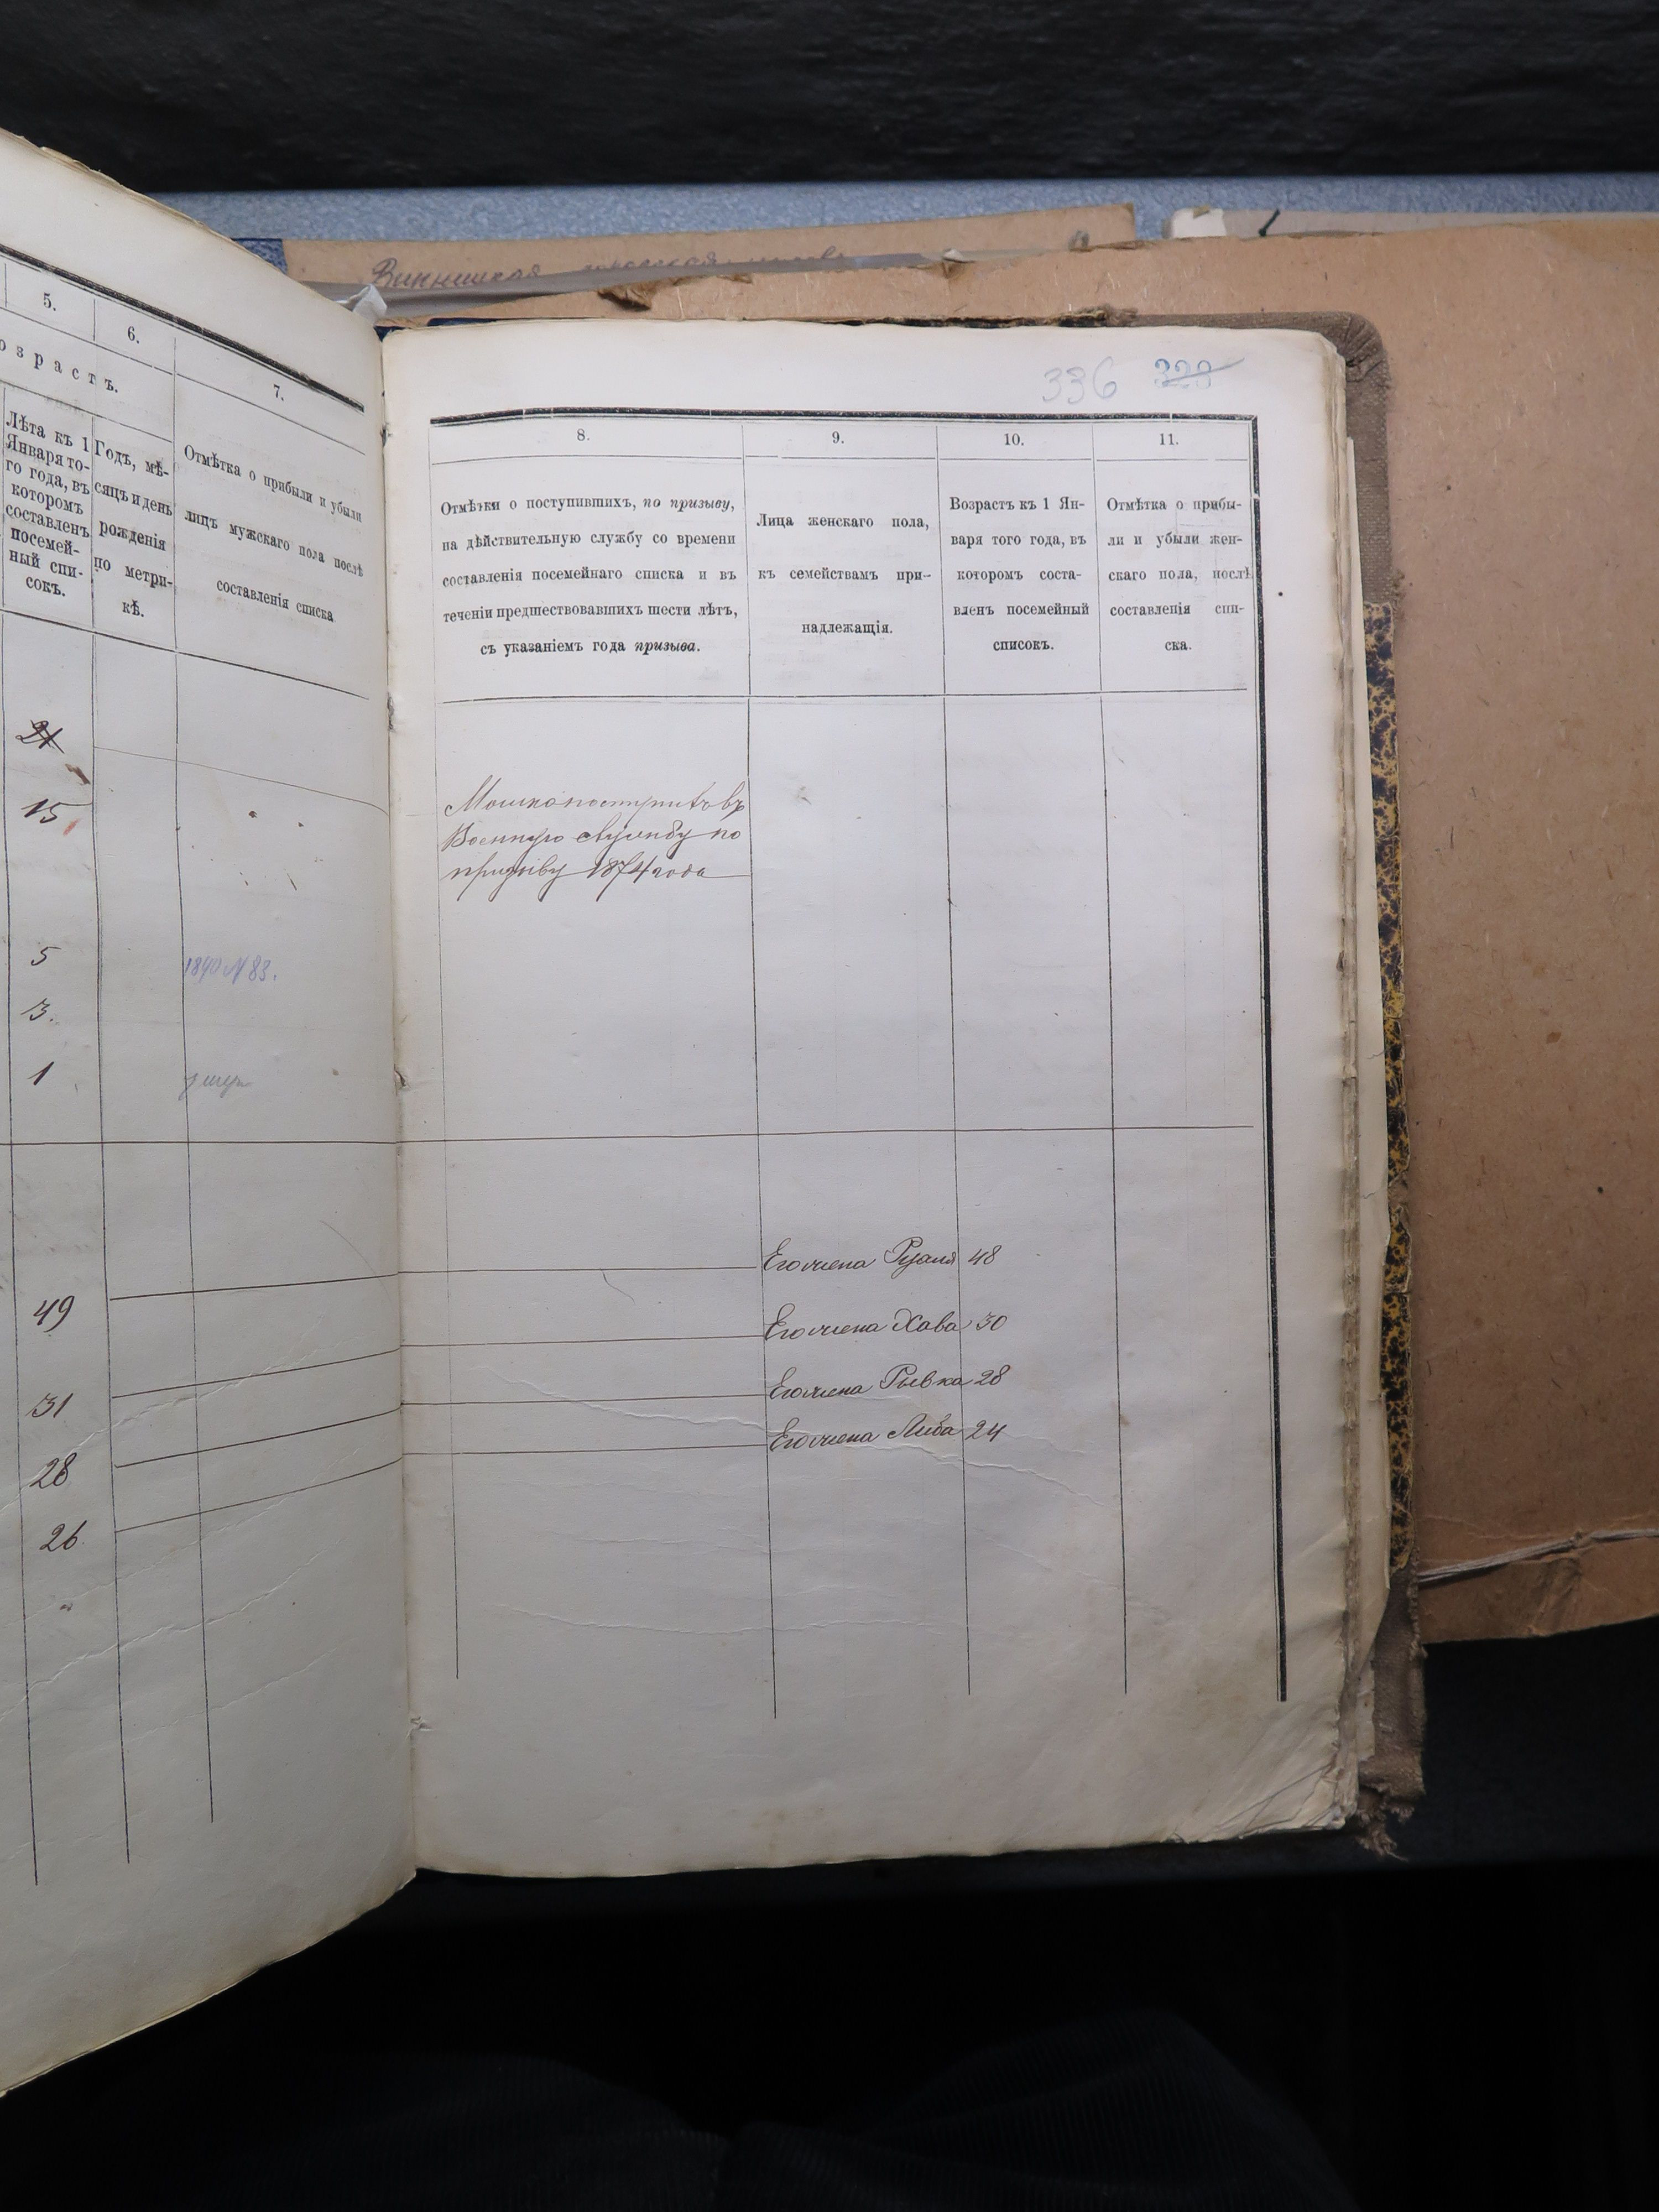 Винницкая городская
5.
6.
7.
озрастъ.
Лѣта къ 1
Января то-
го года, въ
которомъ
составленъ
посемей-
ный спи-
сокъ.
Годъ, мѣ-
сяцъ и день
рожденія
по метри-
кѣ.
Отмѣтка о прибыли и убыли
лицъ мужскаго пола послѣ
составленія списка
21
15
5
1890 № 83.
3.
1
49
31
28
26
336 328
8.
9.
10.
11.
Отмѣтки о поступившихъ, по призыву,
на дѣйствительную службу со времени
составленія посемейнаго списка и въ
теченіи предшествовавшихъ шести лѣтъ,
съ указаніемъ года призыва.
Лица женскаго пола,
къ семействамъ при-
надлежащія.
Возрастъ къ 1 Ян-
варя того года, въ
которомъ соста-
вленъ посемейный
списокъ.
Отмѣтка о прибы-
ли и убыли жен-
скаго пола, послѣ
составленія спи-
ска.
Мошко поступилъ въ
Военную службу по
призыву 1874 года
Его жена 48
Его жена Хава 30
Его жена Рывка 28
Его жена Либа 24